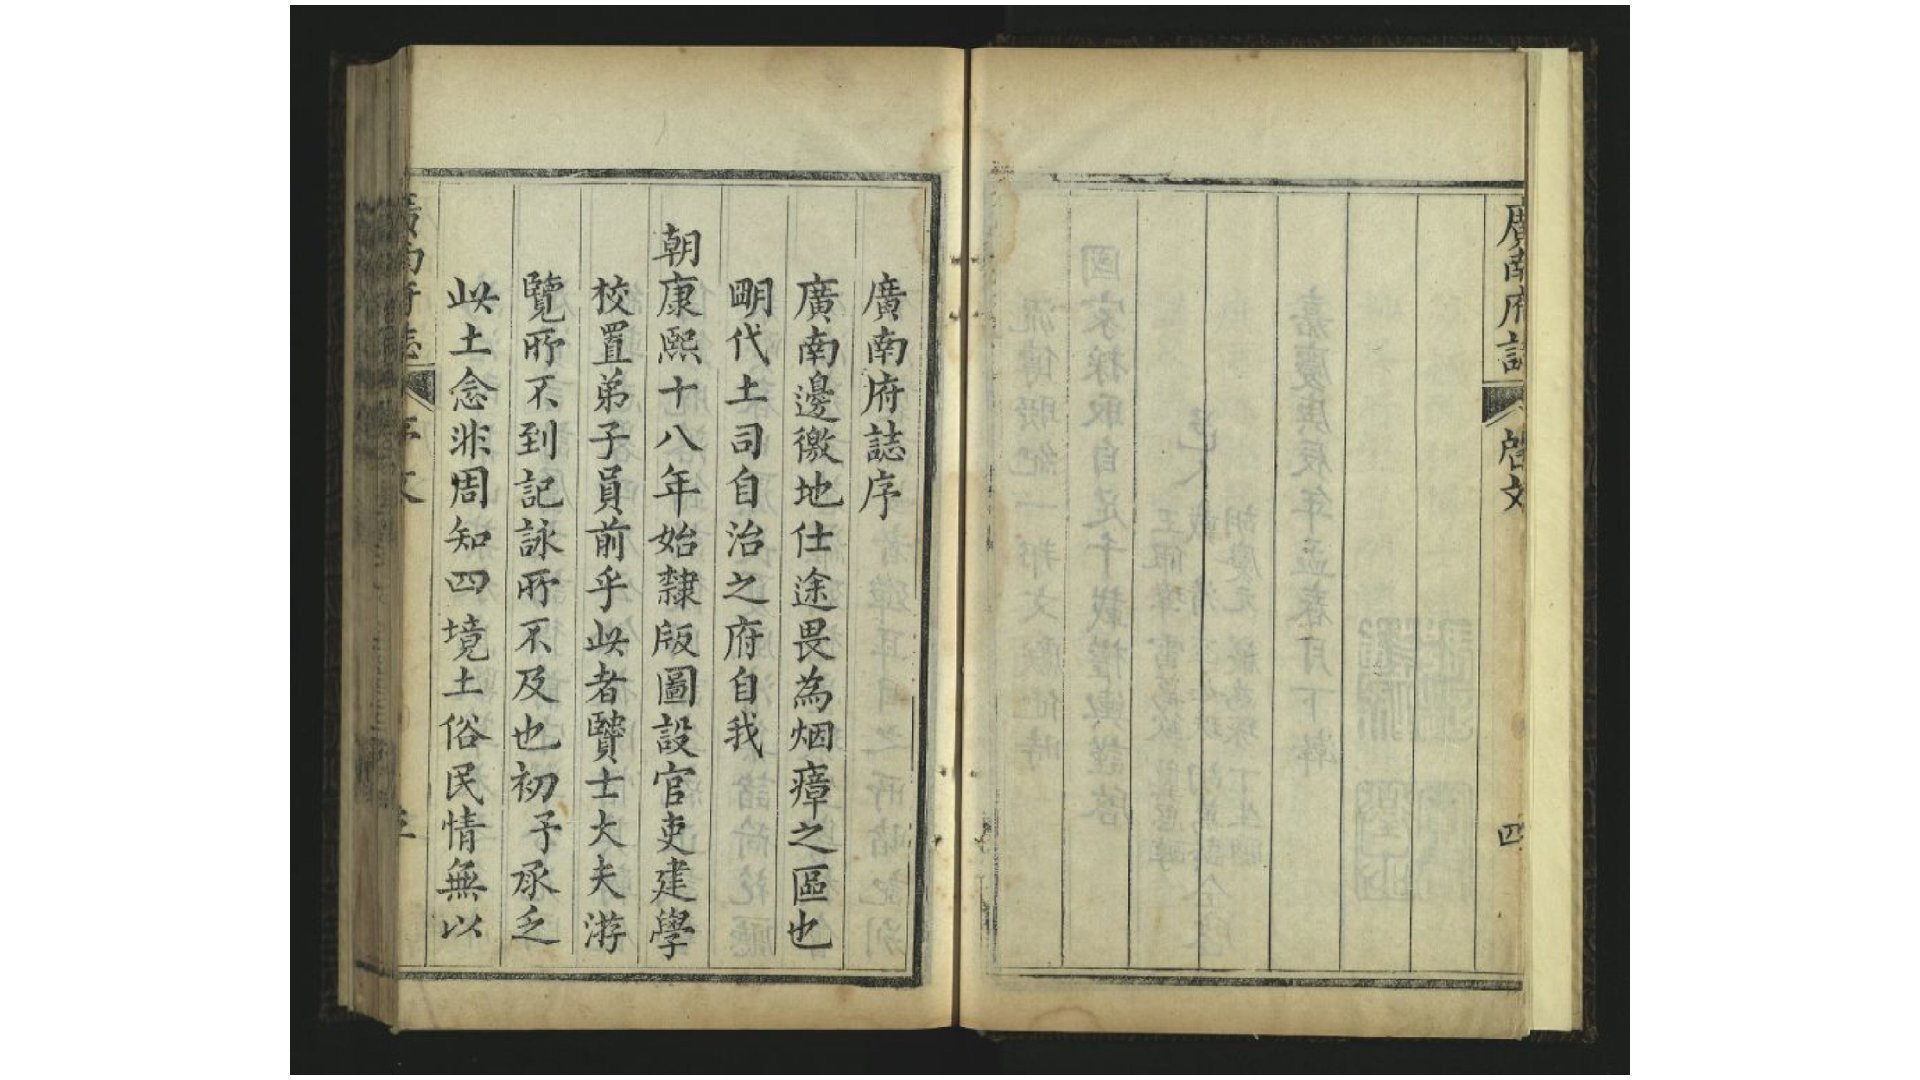 廣南府誌
啓文
四
廣南府誌序
廣南邊徼地仕途畏為烟瘴之區也
明代土司自治之府自我
朝康熙十八年始隸版圖設官吏建學
校置弟子員前乎此者賢士大夫游
覽所不到記詠所不及也初子承乏
此土念非周知四境土俗民情無以